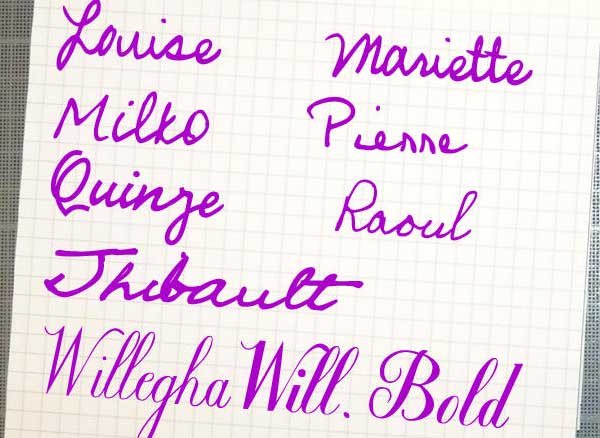 Louise Mariette
Milko Pierre
Quinze Raoul
Thibault
Willegha Will. Bold